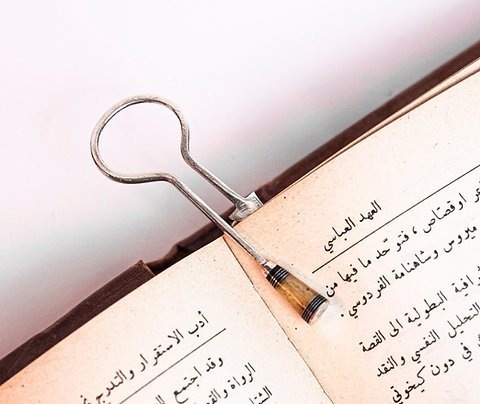 العهد العباسي
او قصّاص ، فتوحّد ما فيها من
ميروس وشاهنامة الفردوسي ؛
البطولية الى القصة
التحليل النفسي والنقد
في دون كيخوتي
أدب الاستقرار والتدرج
وقد اجتمع
الرواة